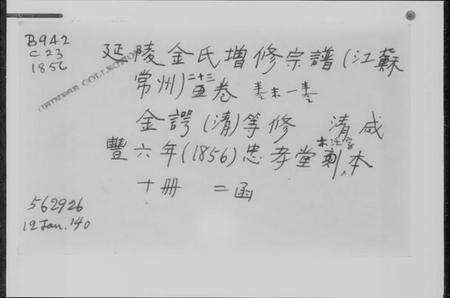 B942
C23
1856
延陵金氏增修宗譜(江蘇
常州)二十三卷 卷末一卷
金諤(清)等修 清咸
豐六年(1856)忠孝堂木活字本
十冊 二函
562926
12 Jan. '40